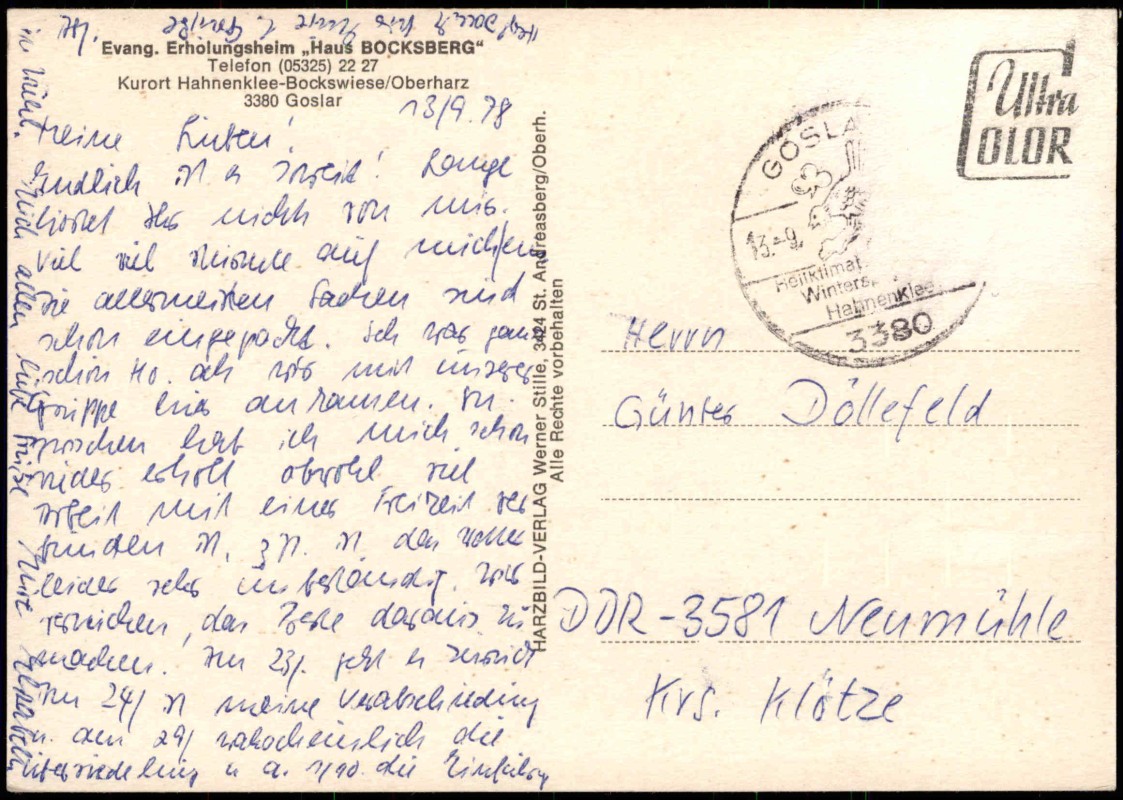 Evang. Erholungsheim „Haus BOCKSBERG“
Telefon (05325) 22 27
Kurort Hahnenklee-Bockswiese/Oberharz
3380 Goslar
13/9.78
Meine Lieben!
Endlich ist es soweit! Lange
hörtet Ihr nichts von mir.
Viel viel stürmte auf mich ein
Die allermeisten Sachen sind
schon eingepackt. Ich war ganz
schön k.o. als wir mit unserer
Gruppe hier ankamen. In-
zwischen hab ich mich schon
wieder erholt obwohl viel
Arbeit mit einer Freizeit ver
bunden ist, z.Zt. ist das Wetter
leider sehr unbeständig. Wir
versuchen, das Beste daraus zu
machen! Am 23/. geht es zurück
Am 24/ ist meine Verabschiedung
u. am 29/ wahrscheinlich die
Übersiedelung u a. 1/10. die Einführung
in
Euch allen liebe Grüße Eure Elisabeth
Herzl.
Grüße
HARZBILD-VERLAG Werner Stille, 3424 St. Andreasberg/Oberh.
Alle Rechte vorbehalten
Ultra
COLOR
GOSLA
13.-9.
Heilklimat
Winters
Hahnenklee
3380
Herrn
Günter Döllefeld
DDR-3581 Neumühle
Krs. Klötze